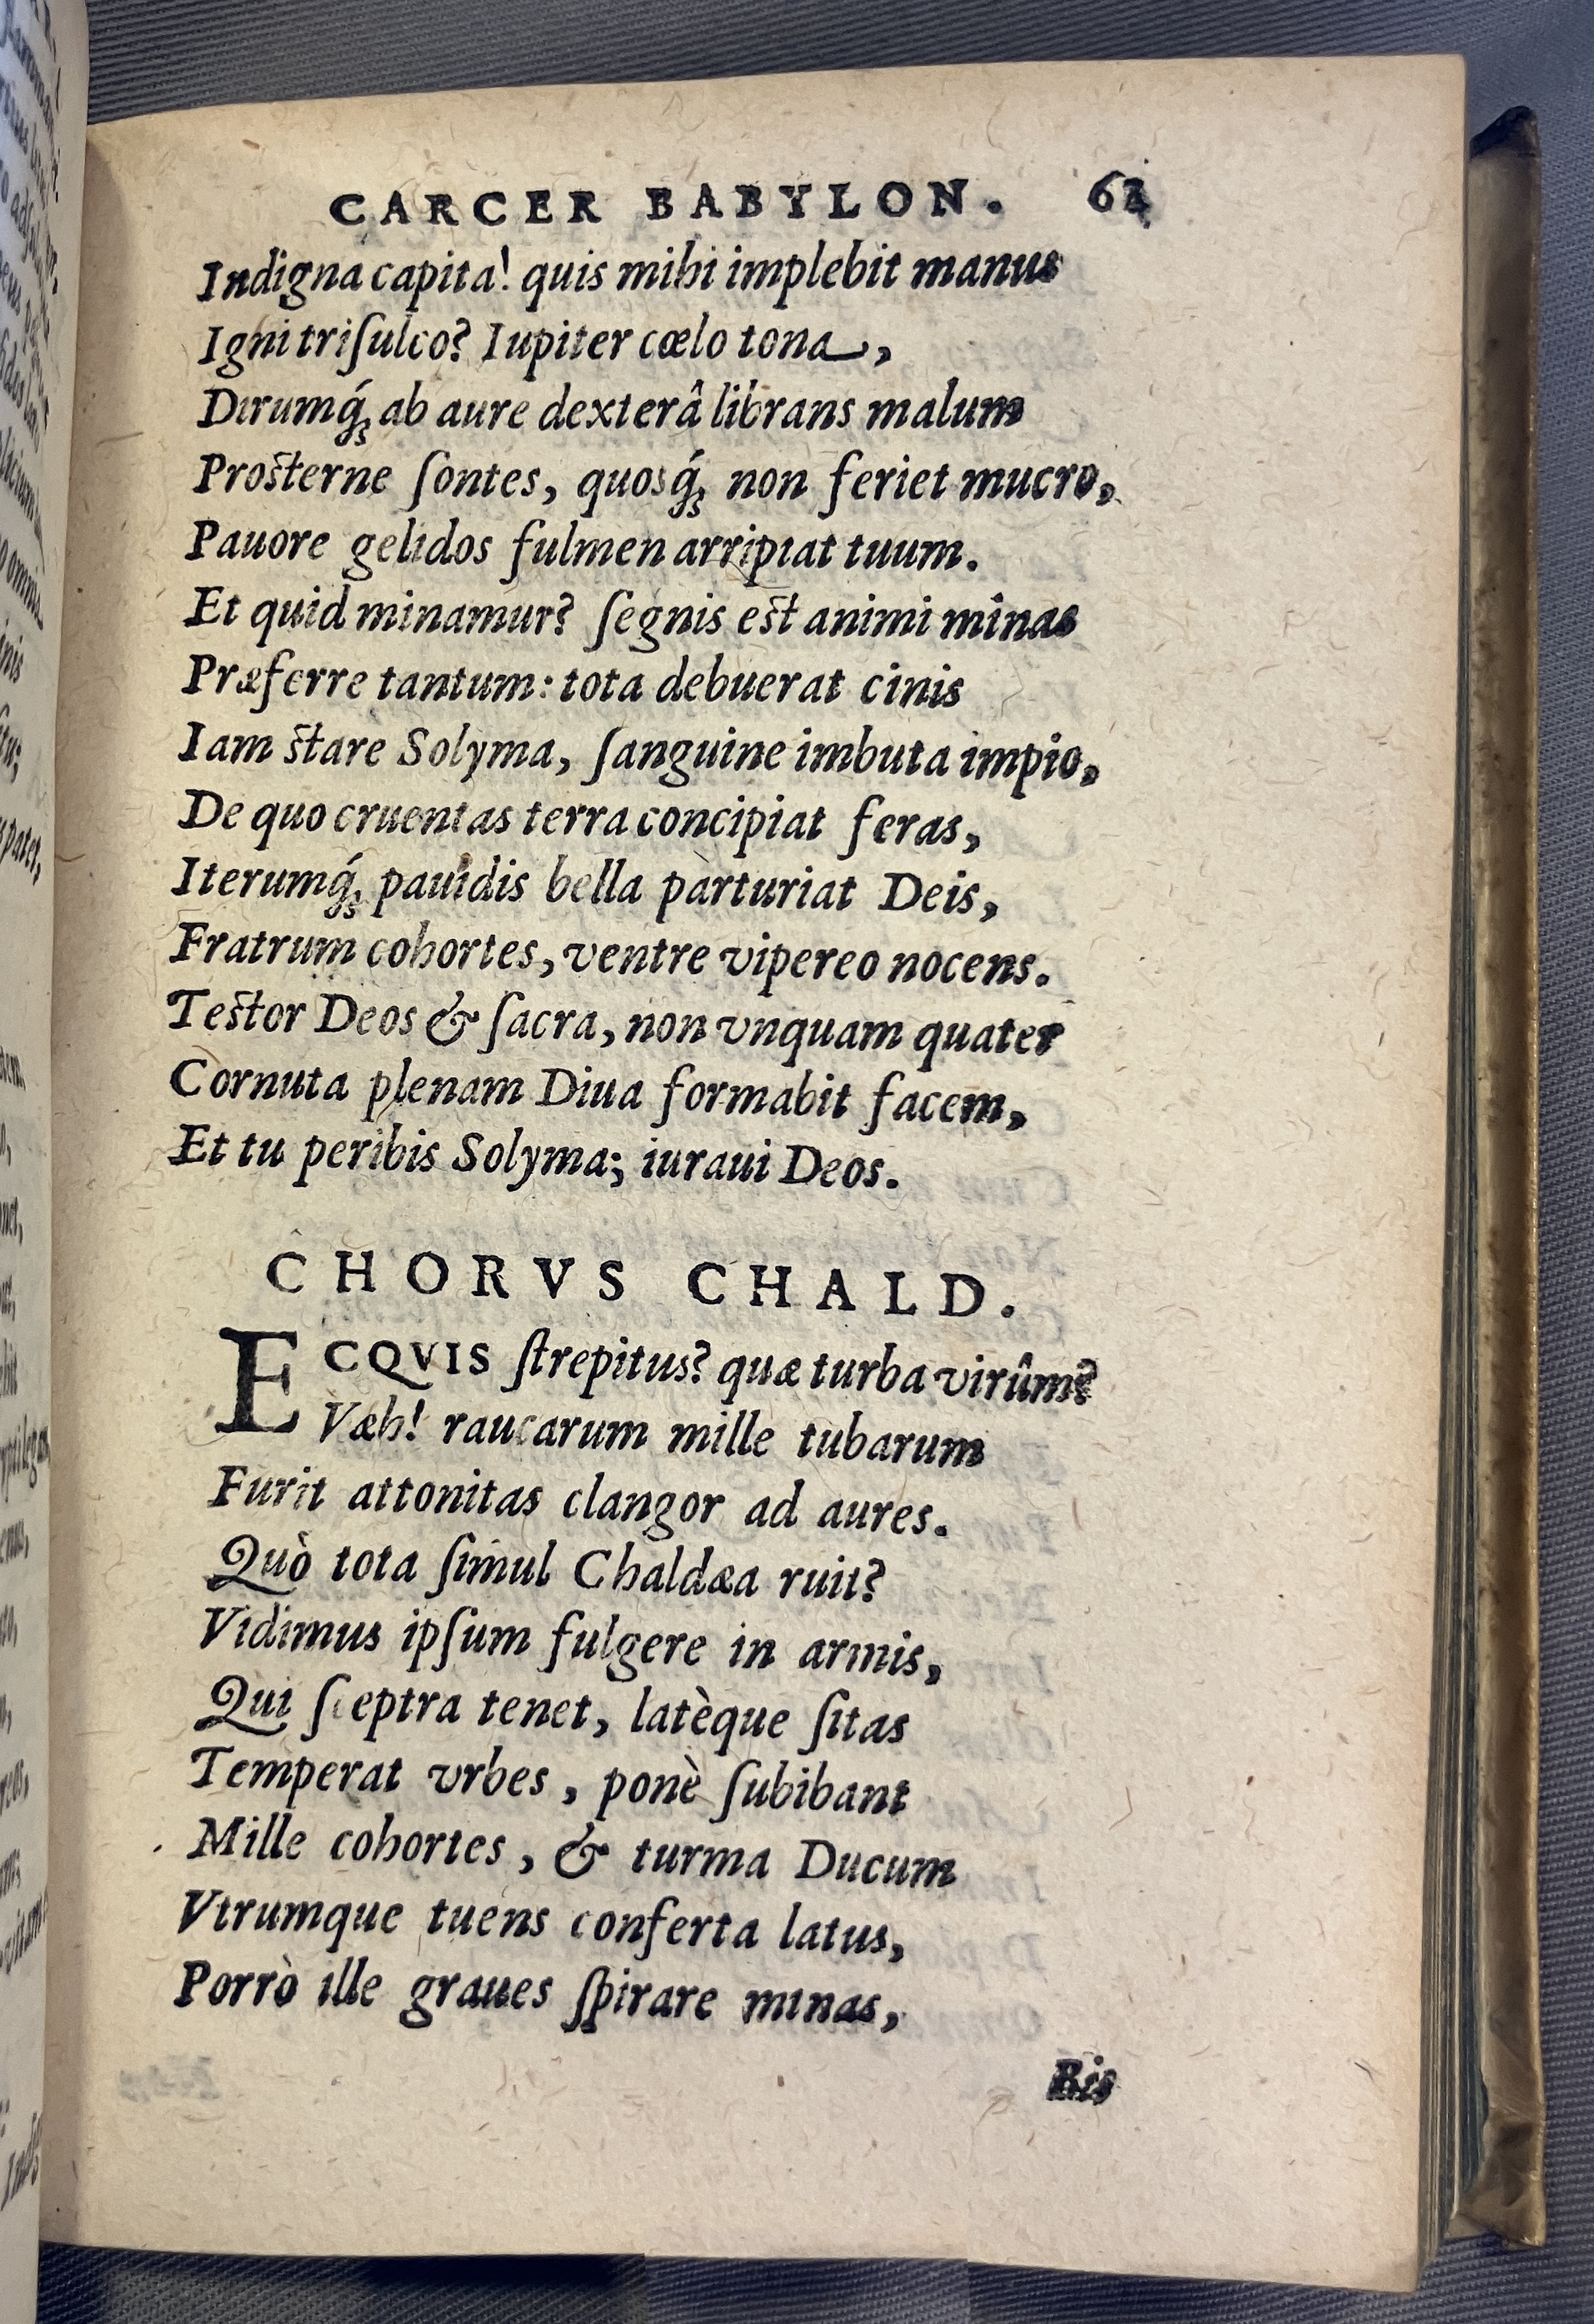 CARCER BABYLON.
Indigna capita! quis mihi implebit manus
Igni triſulco? Iupiter cœlo tona,
Dirumq́; ab aure dexterâ librans malum
Proſterne ſontes, quosq́; non feriet mucro,
Pauore gelidos fulmen arripiat tuum.
Et quid minamur? ſegnis eſt animi minas
Præferre tantum: tota debuerat cinis
Iam ſtare Solyma, ſanguine imbuta impio,
De quo cruentas terra concipiat feras,
Iterumq́; pauidis bella parturiat Deis,
Fratrum cohortes, ventre vipereo nocens.
Teſtor Deos & ſacra, non vnquam quater
Cornuta plenam Diua formabit facem,
Et tu peribis Solyma; iuraui Deos.
CHORVS CHALD.
ECQVIS ſtrepitus? quæ turba virûm?
Væh! raucarum mille tubarum
Furit attonitas clangor ad aures.
Quò tota ſimul Chaldæa ruit?
Vidimus ipſum fulgere in armis,
Qui ſceptra tenet, latèque ſitas
Temperat vrbes, ponè ſubibant
Mille cohortes, & turma Ducum
Vtrumque tuens conferta latus,
Porrò ille graues ſpirare minas,
Bis